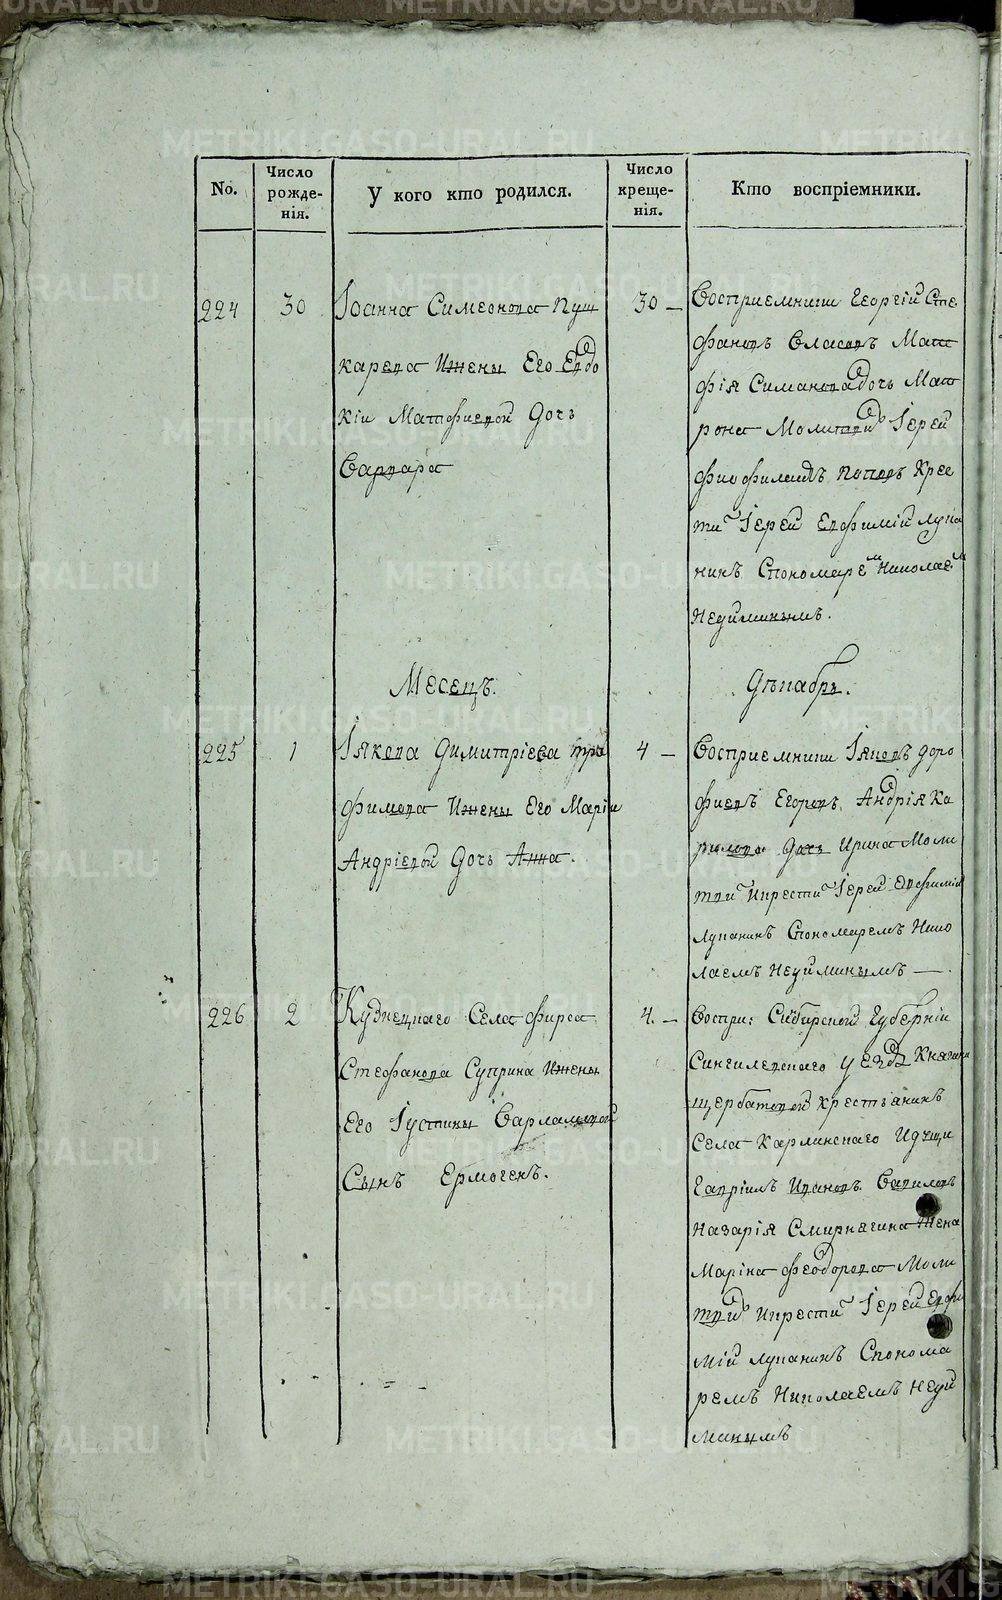 No.
Число рожде-нія.
У кого кто родился.
Число креще-нія.
Кто воспріемники.
224
30
Іоанна Симеонова Пуш
карева Ижены Его Евдо
кіи Матфиевой Дочь
Варвара
30 —
Восприемники Георгій Сте
фановъ Власовъ Мат
фія Симанова дочь Мат
рона Молитвий Іерей
Фиофилактъ Поповъ Крес
ти Іерей Евфимій Лупа
нинъ Спономаремъ Николаемъ
Недиминымъ.
Месецъ.
Дѣкабрь.
225
1
Іякова Димитріева Тро
фимова Ижены Его Маріи
Андріевой Дочь Анна.
4 —
Восприемники Іяковъ Доро
фиевъ Егоровъ, Андрія Ка
рилова Дочь Ирина Моли
тви Икрести Іерей Евфимій
Лупанинъ Спономаремъ Нико
лаемъ Недиминымъ —.
226
2
Кузнецкаго Села Фирса
Стефанова Суприна Ижены
Его Іустины Варламовой
Сынъ Ермогенъ.
4. —
Воспри: Сибирской Губерніи
Сингилевскаго Уезда Княгини
Щербатовой Крестьянинъ
Села Карлинскаго Идущи
Гавріилъ Ивановъ Вавиловъ
Назарія Смирнягина Жена
Марина Феодорова Моли
твий Икрести Іерей Евфи
мій Лупанинъ Спонома
ремъ Николаемъ Неди
минымъ
METRIKI.GASO-URAL.RU